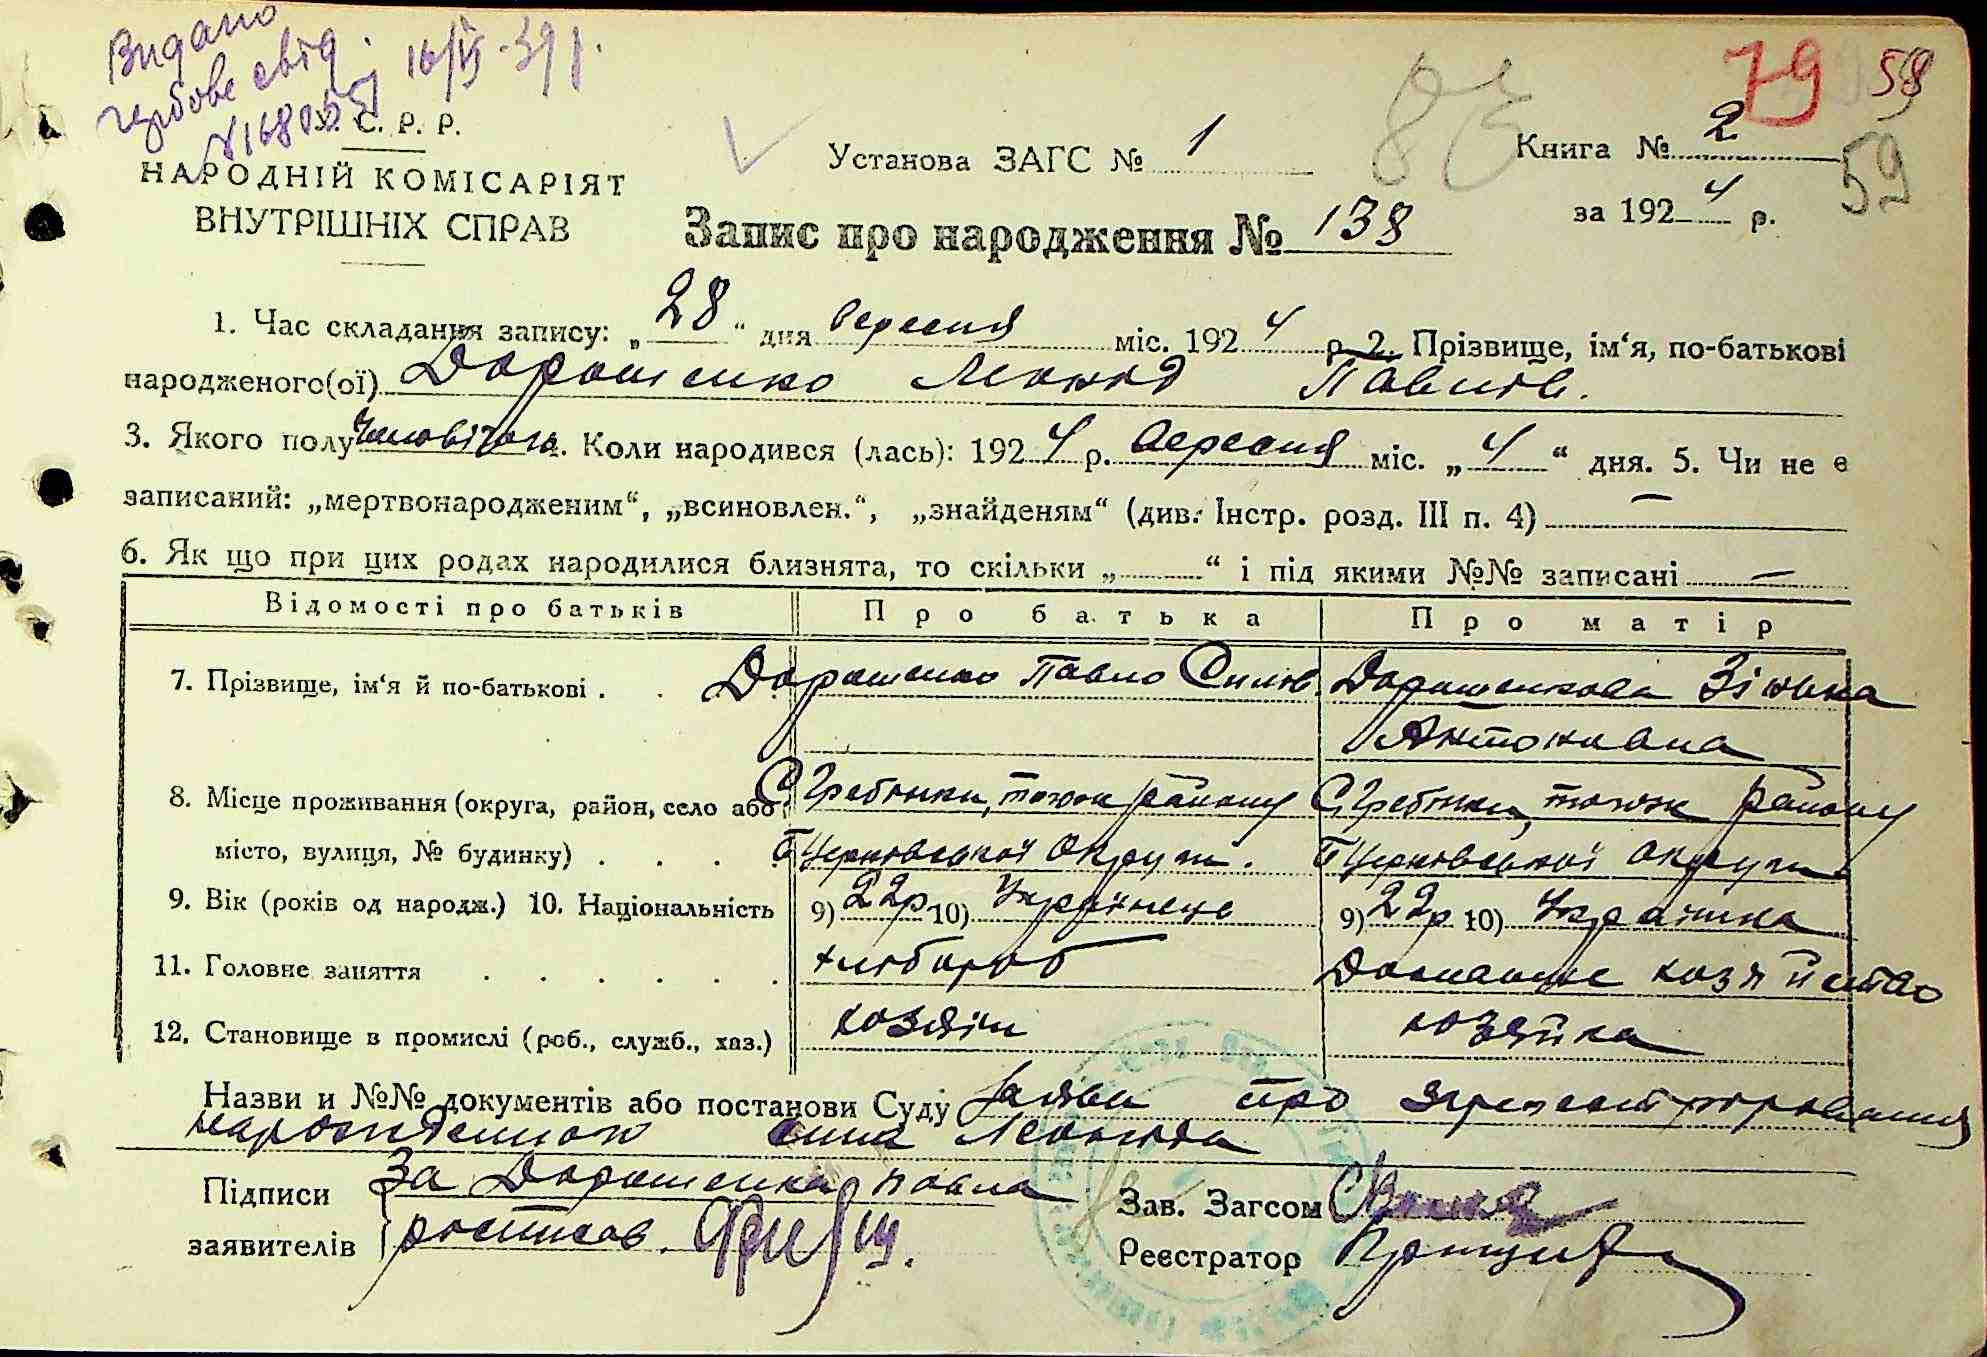 Видано
гербове свід. 16/IX-39 р.
У. С. Р. Р.
НАРОДНІЙ КОМІСАРІЯТ
ВНУТРІШНІХ СПРАВ
Установа ЗАГС № 1
Книга № 2
79 59
83 59
за 1924 р.
Запис про народження № 138
1. Час складання запису: „28“ дня вересня міс. 1924 р. 2. Прізвище, ім‘я, по-батькові
народженого(ої) Дорошенко Леонід Павлов.
3. Якого полу чоловічого 4. Коли народився (лась): 1924 р. вересня міс. „4“ дня. 5. Чи не є
записаний: „мертвонародженим“, „всиновлен.“, „знайденям“ (див. Інстр. розд. III п. 4) —
6. Як що при цих родах народилися близнята, то скільки „ “ і під якими №№ записані —
Відомості про батьків Про батька Про матір
7. Прізвище, ім‘я й по-батькові . . Дорошенко Павло Силов. Дорошенкова Зінька
Антоновна
8. Місце проживання (округа, район, село або С Гребінки, тож району С Гребінки, тож району
місто, вулиця, № будинку) . . . БЦерковської Округи. БЦерковської Округи
9. Вік (років од народж.) 10. Національність 9) 22р 10) Українець 9) 22р 10) Українка
11. Головне заняття . . . . . . хлібороб Домашнє хозяйство
12. Становище в промислі (роб., служб., хаз.) хозяін хозяйка
Назви и №№ документів або постанови Суду Заява про зареєстровання
народженого сина Леоніда
Підписи За Дорошенка Павла
заявителів росписав.
Зав. Загсом
Реєстратор